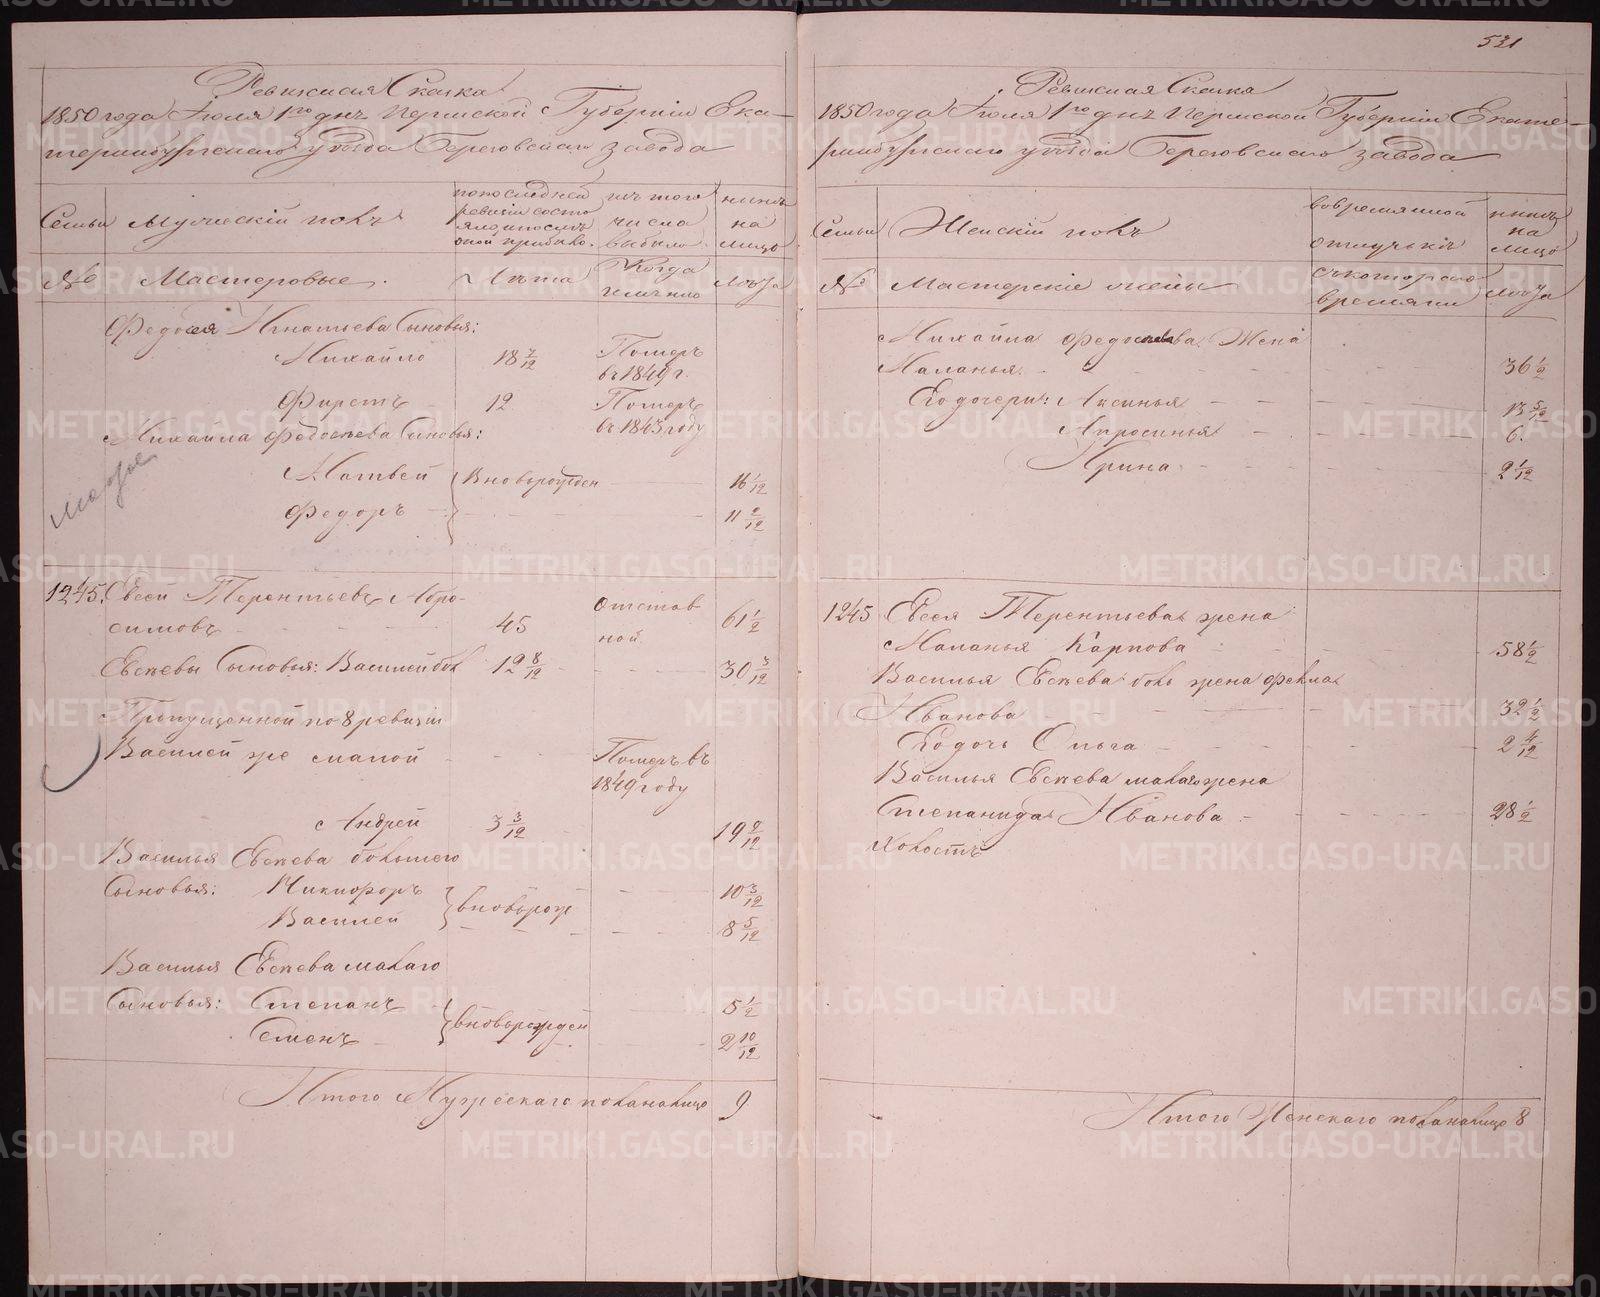 531
Ревижская Сказка
1850 года Июля 1го дня Пермской Губернiи Ека-
теринбургскаго уезда Березовскаго завода
Семьи
Мужескiй полъ
по последней ревизiи состояло и после оной прибыло.
изъ того числа выбыло.
ныне на лицо
№
Мастеровые.
Лета
Когда именно
Лета
Федосея Игнатьева Сыновья:
Михайло 18 7/12 Померъ въ 1849 г.
Фирстъ 12 Померъ въ 1843 году
Михайла Федосеева Сыновья:
Матвей Вновьрожден 16 1/12
Федоръ 11 2/12
1245. Евсей Терентьевъ Абро-
симовъ 45 отставной 61 1/2
Евсеевы Сыновья: Василей бол 12 8/12 30 3/12
Пропущенной по 8 ревизiи
Василей же малой Померъ въ 1849 году
Андрей 3 3/12 19 9/12
Василья Евсеева большаго
Сыновья: Никифоръ вновьрож 10 3/12
Василей 8 5/12
Василья Евсеева малаго
Сыновья: Степанъ вновьрожден 5 1/2
Семенъ 2 10/12
Итого Мужескаго пола налицо 9
Ревижская Сказка
1850 года Июля 1го дня Пермской Губернiи Екате-
ринбургскаго уезда Березовскаго завода
Семьи
Женскiй полъ
во временной отлучке
ныне на лицо
№
Мастерскiе жены
съ котораго времяни
Лета
Михайла Федосеева Жена
Маланья. 36 1/2
Ево дочери: Аксинья 13 5/12
Апросинья 6.
Ирина 2 1/12
1245 Евсея Терентьева жена
Маланья Карпова 58 1/2
Василья Евсеева боль жена Фекла
Иванова 32 1/2
Ево дочь Ольга 2 4/12
Василья Евсеева малаго жена
Степанида Иванова 28 1/2
Холостъ
Итого Женскаго пола налицо 8
METRIKI.GASO-URAL.RU